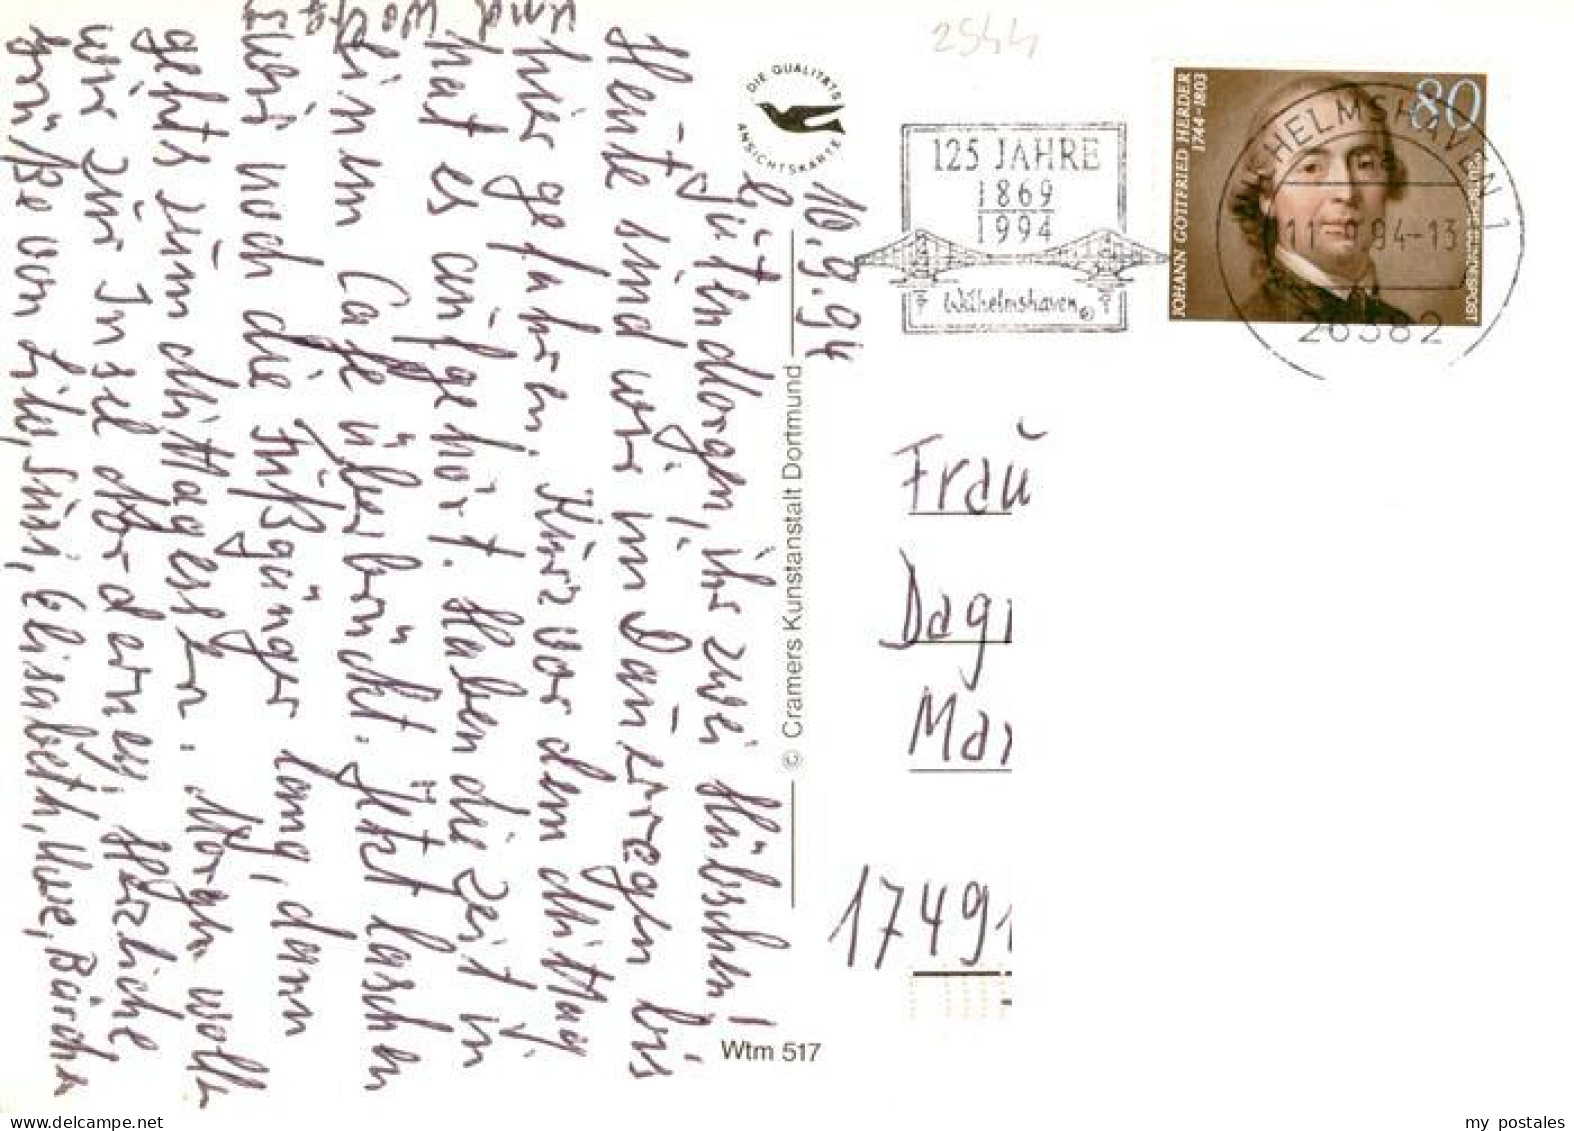 10.9.94
Güten Morgen, ihr zwei Hübschen!
Heüte sind wir im Daüerregen bis
hier gefahren. Kürz vor dem Mittag
hat es aüfgehört. Haben die Zeit in
einem Cafe überbrückt. Jetzt laschen
Susi noch die Füßgänger lang, dann
gehts züm Mittagessen. Morgen wolln
wir zür Insel Norderney. Herzliche
Grüße von Lilo, Susi, Elisabeth, Uwe, Bärchen
und
DIE QUALITÄTS
ANSICHTSKARTE
© Cramers Kunstanstalt Dortmund
Wtm 517
2544
125 JAHRE
1869
1994
Wilhelmshaven
JOHANN GOTTFRIED HERDER
1744-1803
80
DEUTSCHE BUNDESPOST
WILHELMSHAVEN 1
11.9.94-13
26382
Frau
Dag
Ma
17491
my postales